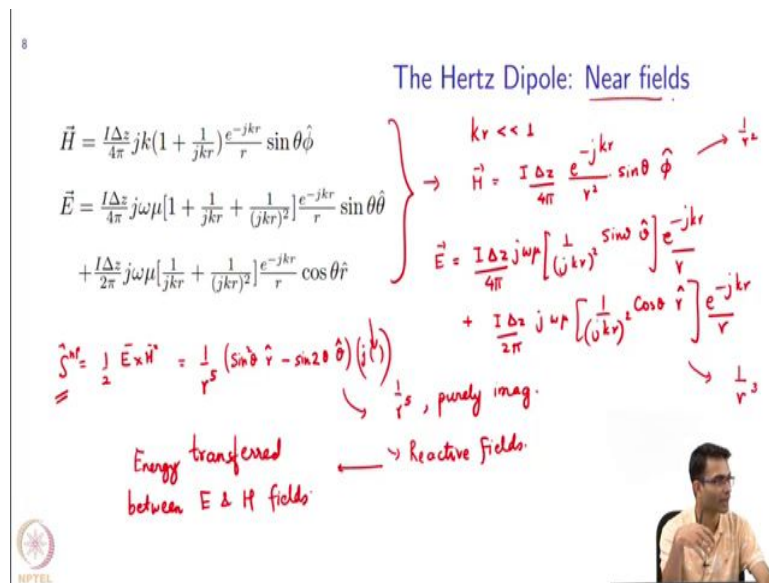 8
The Hertz Dipole: Near fields
H⃗ = IΔz/4π jk(1 + 1/jkr) e^{-jkr}/r sin θφ̂
E⃗ = IΔz/4π jωμ[1 + 1/jkr + 1/(jkr)^2] e^{-jkr}/r sin θθ̂
+ IΔz/2π jωμ[1/jkr + 1/(jkr)^2] e^{-jkr}/r cos θr̂
kr << 1
→ H⃗ = IΔz/4π e^{-jkr}/r^2 · sinθ φ̂ → 1/r^2
E⃗ = IΔz/4π jωμ [1/(jkr)^2 sinθ θ̂] e^{-jkr}/r
+ IΔz/2π jωμ [1/(jkr)^2 cosθ r̂] e^{-jkr}/r
→ 1/r^3
= 1/2 E⃗ × H⃗* = 1/r^5 (sin²θ r̂ - sin2θ θ̂)
→ 1/r^5, purely imag.
→ Reactive fields.
Energy transferred
between E & H fields.
NPTEL